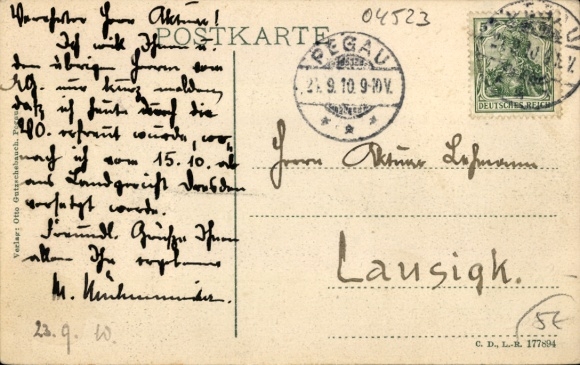 Verehrter Herr Aktuar!
Ich will Ihnen u.
den übrigen Herren vom
AG. nur kurz melden,
daß ich heute durch die
VO. erfreut wurde, wo-
nach ich vom 15.10. ab
ans Landgericht Dresden
versetzt werde.
Freundl. Grüße Ihnen
allen Ihr ergebener
M.
23. 9. 10.
POSTKARTE
04523
PEGAU
21. 9. 10. 9-10V.
* * *
5
DEUTSCHES REICH
Herrn Aktuar Lehmann
Lausigk.
5E
C. D., L.-R. 177894
Verlag: Otto Gutzschebauch, Pegau